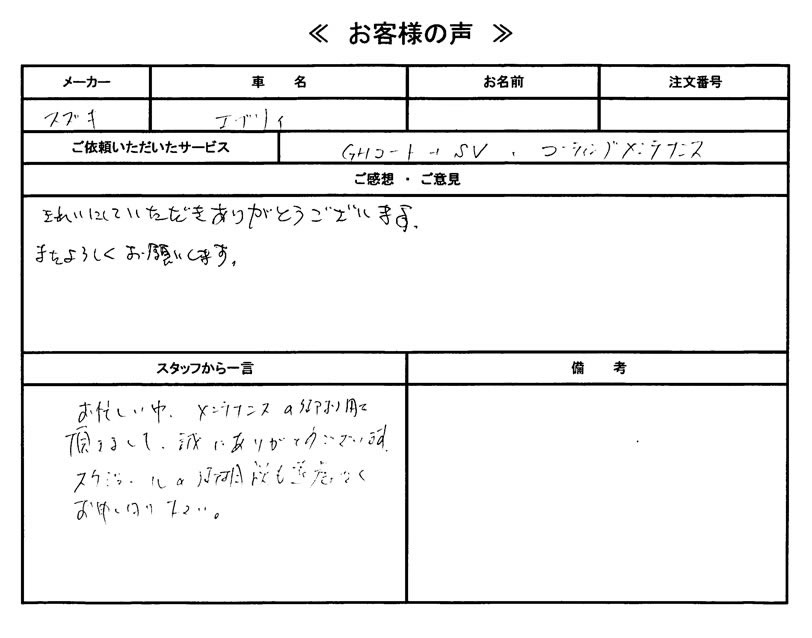 ≪ お客様の声 ≫
メーカー 車 名 お名前 注文番号
スズキ エブリイ
ご依頼いただいたサービス GHコート-1 SV ・ コーティングメンテナンス
ご感想 ・ ご意見
きれいにしていただきありがとうございます。
またよろしくお願いします。
スタッフから一言 備 考
お忙しい中、メンテナンスの御利用
頂きまして、誠にありがとうございます。
スケジュールの御相談も遠慮なく
お申し付け下さい。